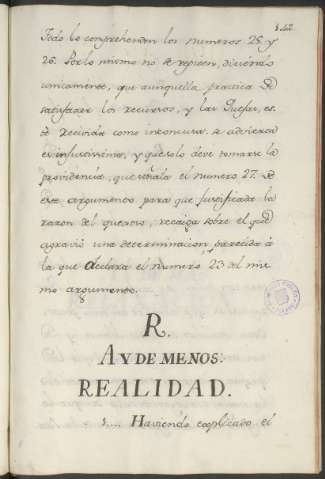 142
Todo lo comprehenden los numeros 25 y
26. Por lo mismo no se repiten, diciendo
unicamente, que aunque la practica de
satisfacer los recursos, y las Quejas, es-
té recivida como inconcusa se advierte
es insubsistente, y que solo deve tomarse la
providencia, que señala el numero 27. de
este argumento para que justificada la
razon del quexoso, recaiga sobre el que
agravió una determinacion parecida á
la que declara el numero 23 del mis-
mo argumento.
R.
AY DE MENOS:
REALIDAD.
1.... Haviendo explicado el